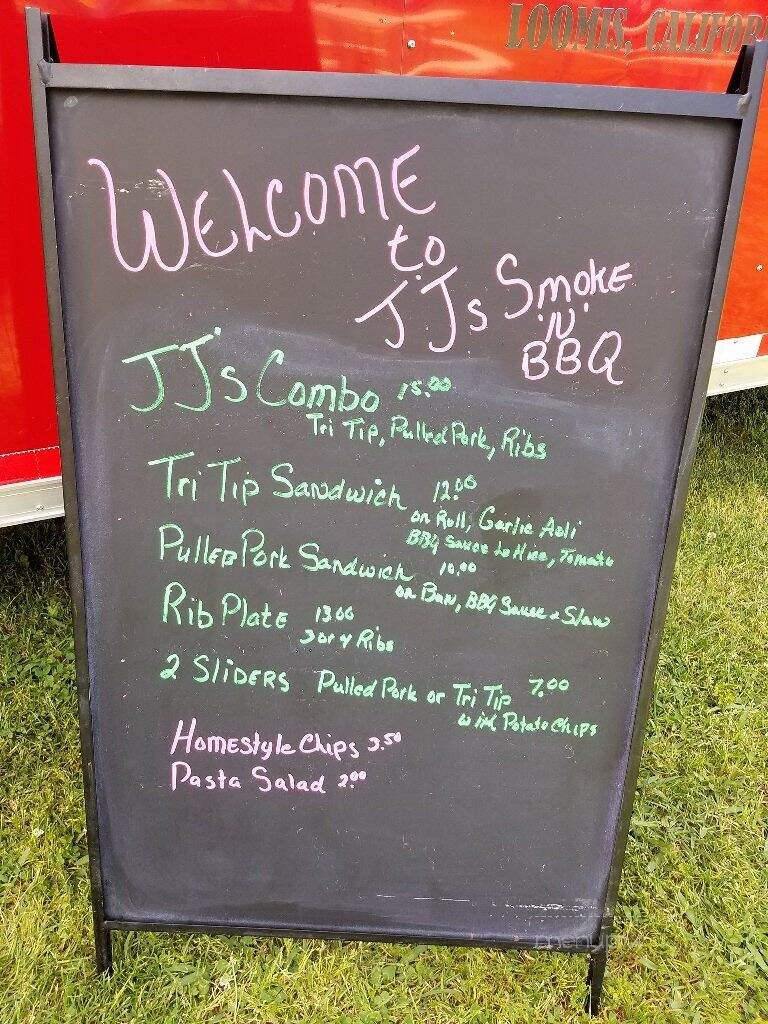 LOOMIS, CALIFOR
WELCOME
to
JJs SMOKE
'N'
BBQ
JJ's Combo 15.00
Tri Tip, Pulled Pork, Ribs
Tri Tip Sandwich 12.00
on Roll, Garlic Aoli
BBQ Sauce Lettice, Tomato
Pulled Pork Sandwich 10.00
on Bun, BBQ Sauce & Slaw
Rib Plate 13.00
3 or 4 Ribs
2 SLIDERS Pulled Pork or Tri Tip 7.00
with Potato Chips
Homestyle Chips 3.50
Pasta Salad 2.00
menupix